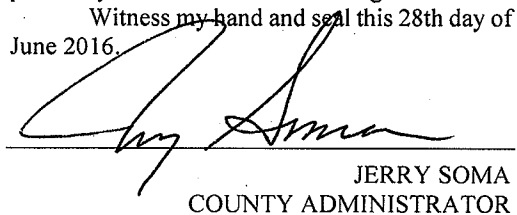 Witness my hand and seal this 28th day of
June 2016.
Jerry Soma
JERRY SOMA
COUNTY ADMINISTRATOR